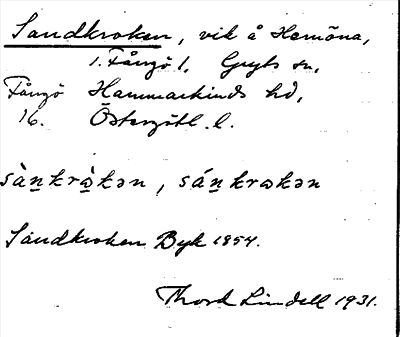 Sandkroken, vik å Hemöna,
1. Fångö 1. Gryts sn,
Fångö Hammarkinds hd,
16. Östergötl. l.
sàn̲krὼkən, sán̲krωkən
Sandkroken Byk 1854.
Thord Lindell 1931.